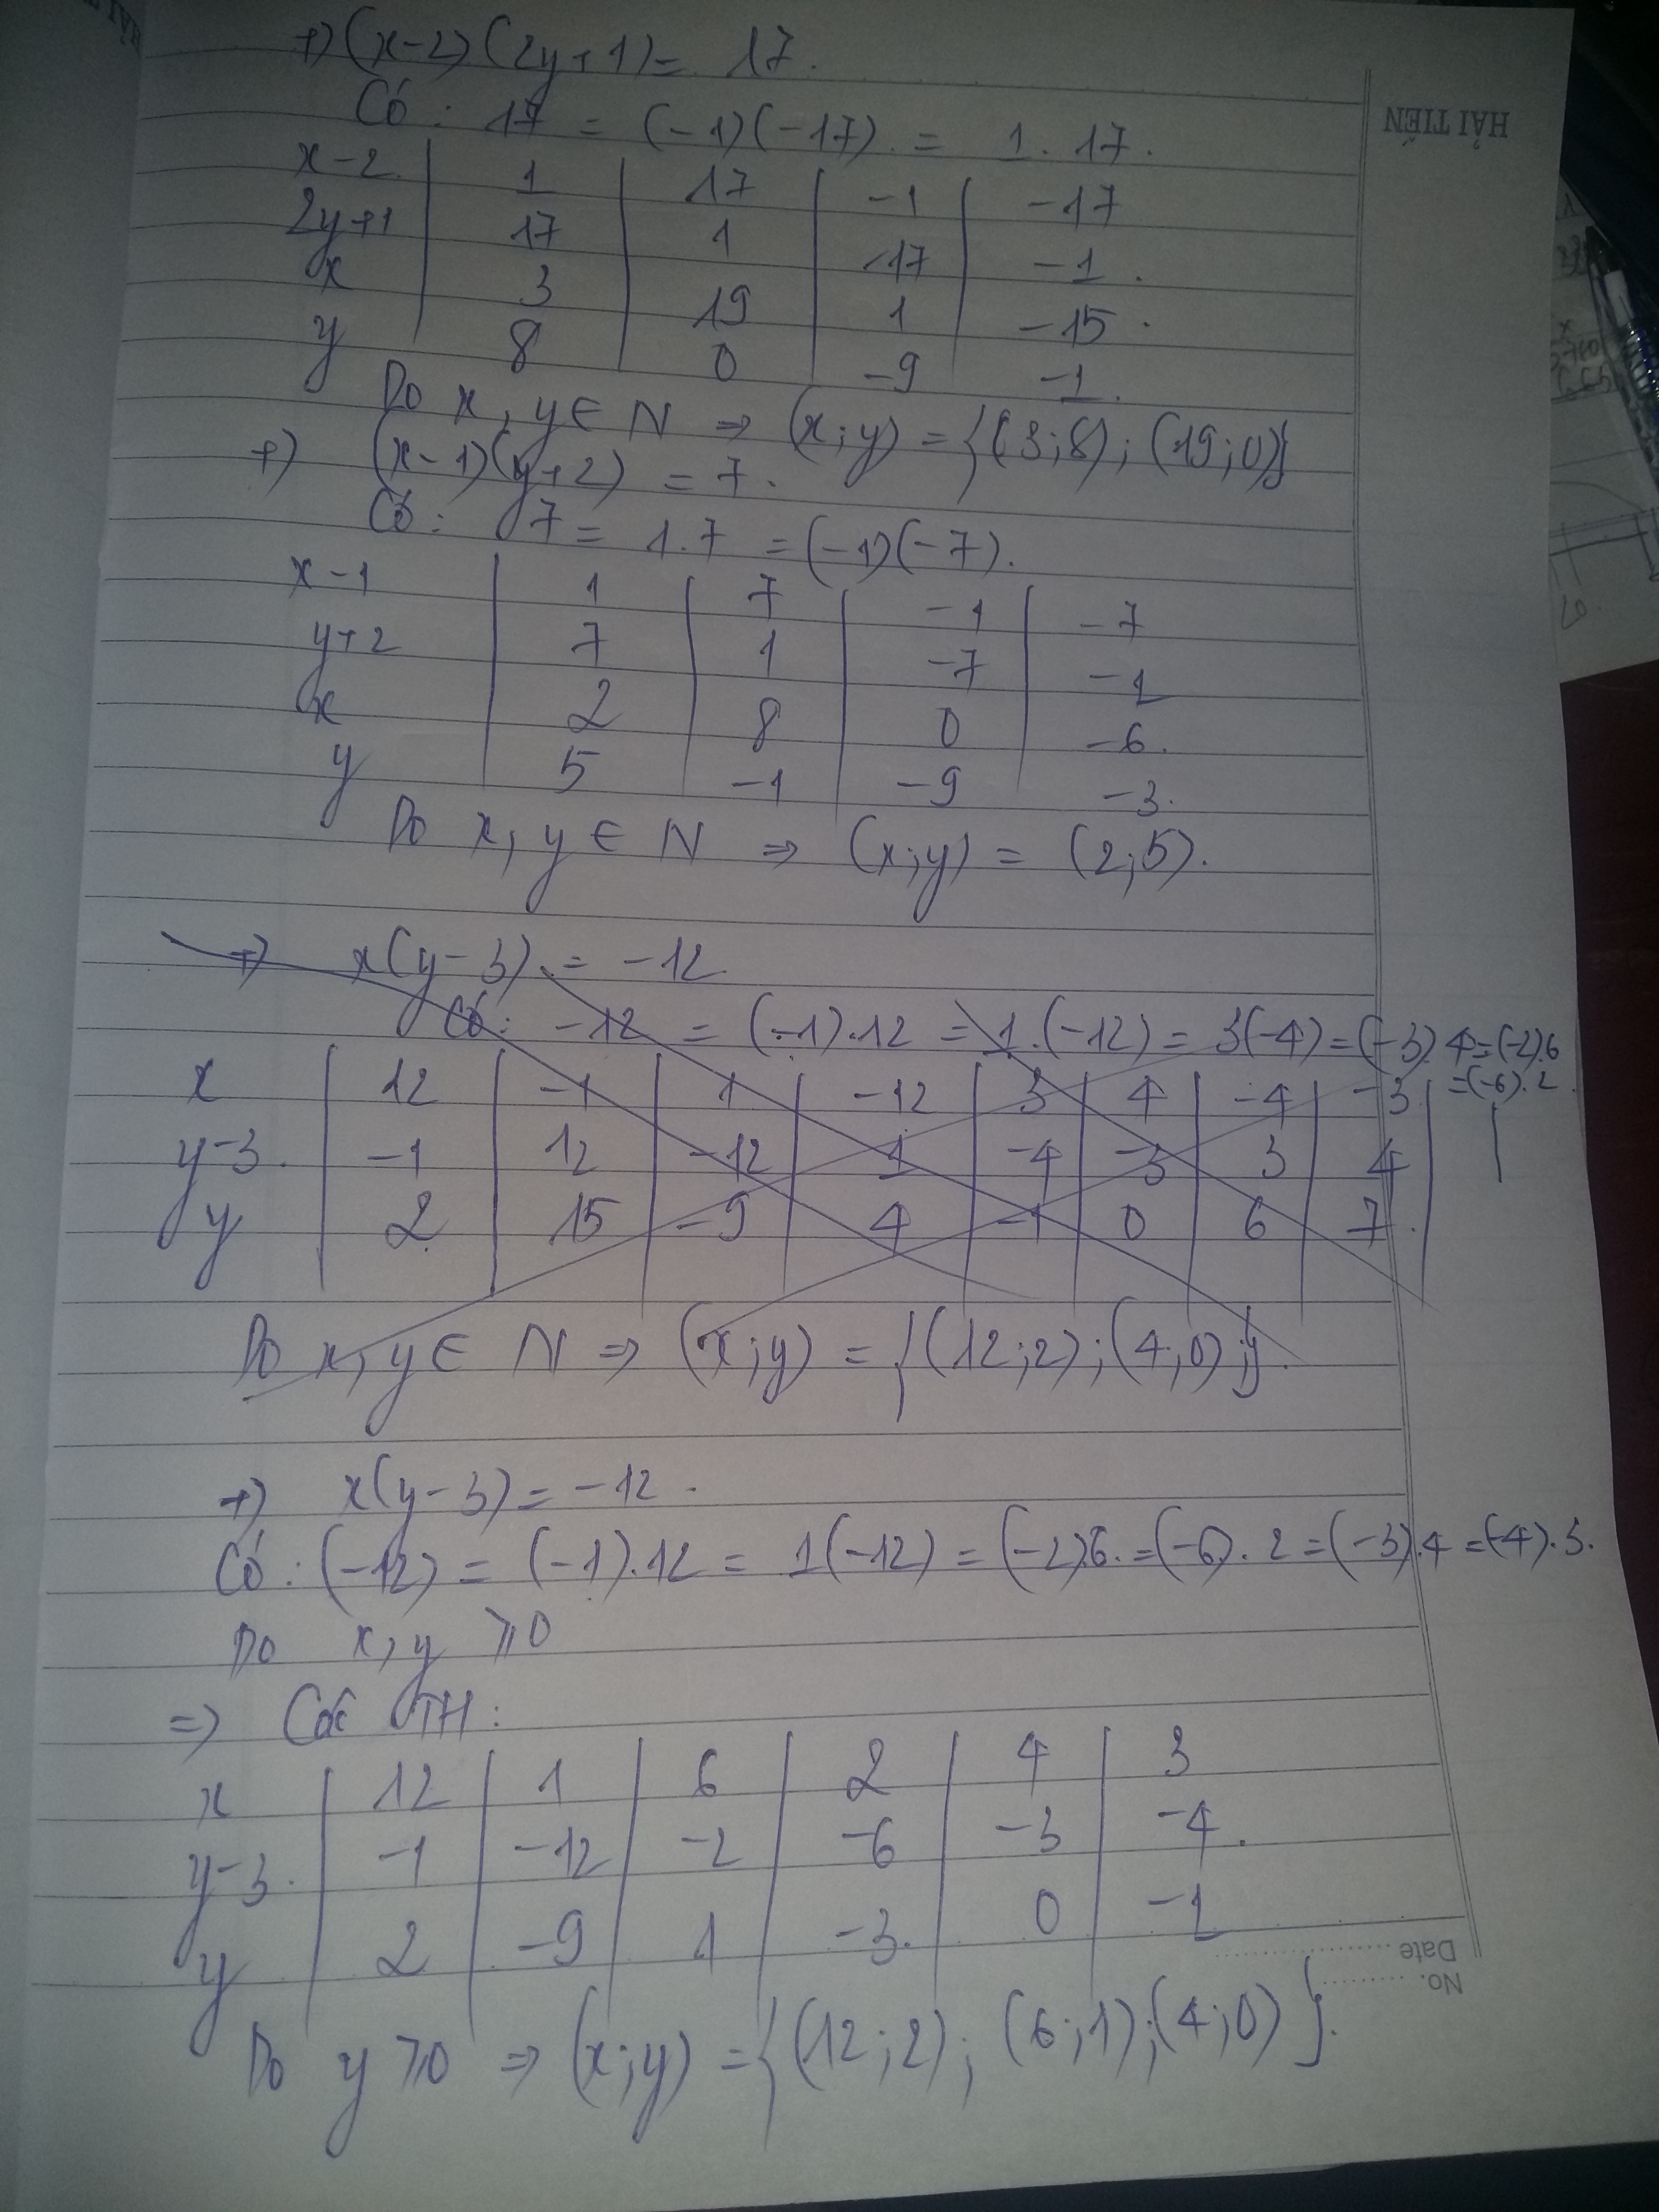 +) (x-2)(2y+1) = 17.
Có: 17 = (-1)(-17). = 1.17.
x-2 | 1 | 17 | -1 | -17
2y+1 | 17 | 1 | -17 | -1.
x | 3 | 19 | 1 | -15.
y | 8 | 0 | -9 | -1.
Do x, y ∈ N ⇒ (x;y) = {(3;8); (19;0)}
+) (x-1)(y+2) = 7.
Có: 7 = 1.7 = (-1)(-7).
x-1 | 1 | 7 | -1 | -7
y+2 | 7 | 1 | -7 | -1
x | 2 | 8 | 0 | -6.
y | 5 | -1 | -9 | -3.
Do x, y ∈ N ⇒ (x;y) = (2;5).
+) x(y-3) = -12
Có: -12 = (-1).12 = 1.(-12) = 3(-4) = (-3).4 = (-2).6
= (-6).2
x | 12 | -1 | 1 | -12 | 3 | 4 | -4 | -3 |
y-3. | -1 | 12 | -12 | 1 | -4 | -3 | 3 | 4 |
y | 2 | 15 | -9 | 4 | -1 | 0 | 6 | 7. |
Do x, y ∈ N ⇒ (x;y) = {(12;2); (4;0);}.
+) x(y-3) = -12.
Có: (-12) = (-1).12 = 1(-12) = (-2)6. = (-6).2 = (-3).4 = (-4).3.
Do x, y ⩾ 0
⇒ Các TH:
x | 12 | 1 | 6 | 2 | 4 | 3
y-3. | -1 | -12 | -2 | -6 | -3 | -4.
y | 2 | -9 | 1 | -3. | 0 | -1
Do y ⩾ 0 ⇒ (x;y) = {(12;2); (6;1); (4;0)}.
HẢI TIẾN
Date
No.